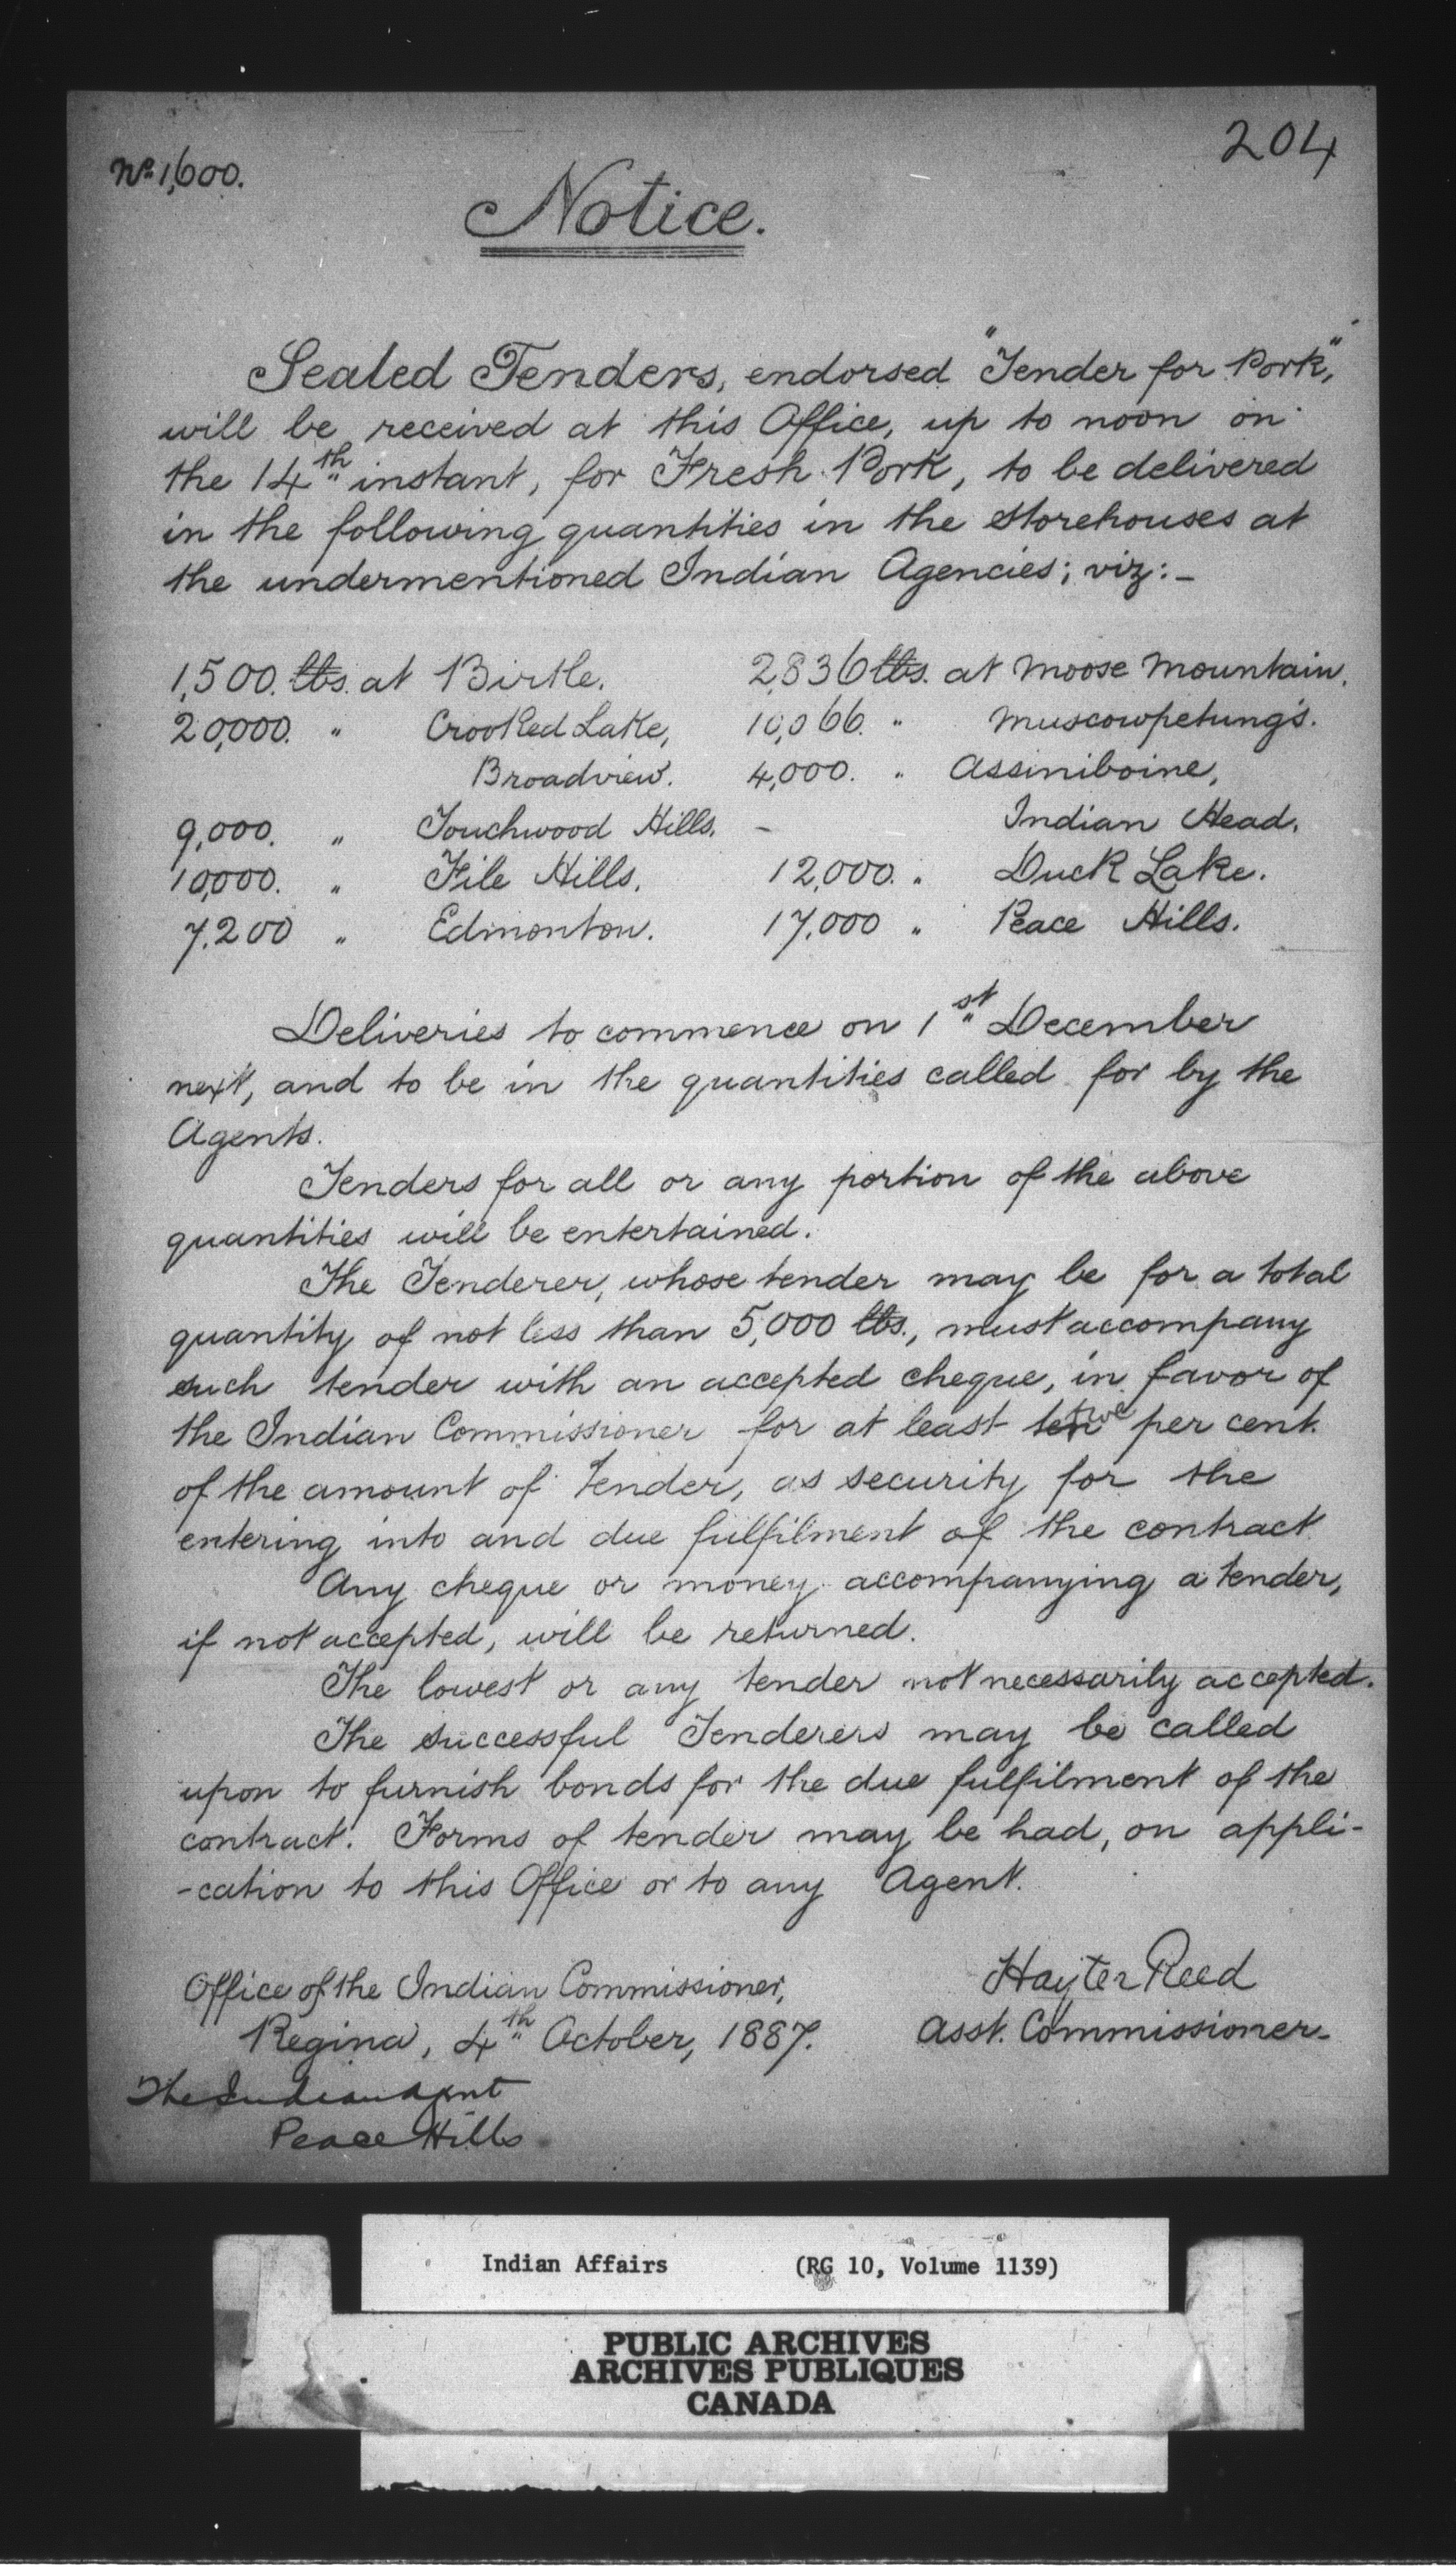 204
No 1,600.
Notice.
Sealed Tenders, endorsed "Tender for Pork,"
will be received at this Office, up to noon on
the 14th instant, for Fresh Pork, to be delivered
in the following quantities in the storehouses at
the undermentioned Indian Agencies; viz:-
1,500. lbs. at Birtle. 2,836 lbs. at Moose Mountain.
20,000. " Crooked Lake, 10,066. " Muscowpetung's.
Broadview. 4,000. " Assiniboine,
9,000. " Touchwood Hills. - Indian Head.
10,000. " File Hills. 12,000. " Duck Lake.
7,200 " Edmonton. 17,000 " Peace Hills.
Deliveries to commence on 1st December
next, and to be in the quantities called for by the
Agents.
Tenders for all or any portion of the above
quantities will be entertained.
The Tenderer, whose tender may be for a total
quantity of not less than 5,000 lbs., must accompany
such tender with an accepted cheque, in favor of
the Indian Commissioner for at least ten five per cent.
of the amount of tender, as security for the
entering into and due fulfilment of the contract
Any cheque or money accompanying a tender,
if not accepted, will be returned.
The lowest or any tender not necessarily accepted.
The successful Tenderers may be called
upon to furnish bonds for the due fulfilment of the
contract. Forms of tender may be had, on appli-
-cation to this Office or to any Agent.
Office of the Indian Commissioner, Hayter Reed
Regina, 4th October, 1887. Asst. Commissioner.
The Indian Agent
Peace Hills
Indian Affairs (RG 10, Volume 1139)
PUBLIC ARCHIVES
ARCHIVES PUBLIQUES
CANADA